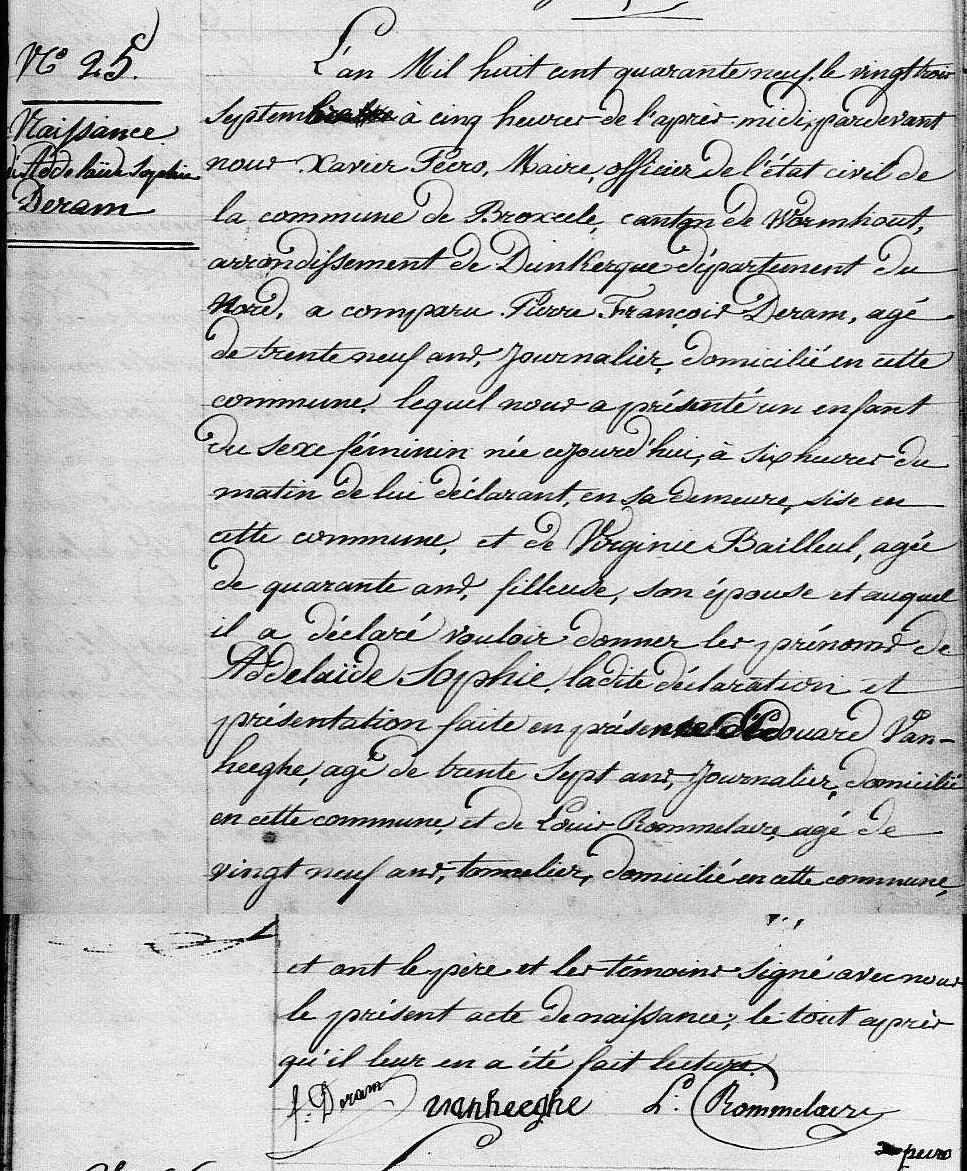 N° 25.
Naissance
d'Addelaïde Sophie
Deram
L'an Mil huit cent quarante neuf, le vingt trois
septembre à cinq heures de l'après-midi, pardevant
nous Xavier Peers, Maire, officier de l'état civil de
la commune de Broxeele, canton de Wormhout,
arrondissement de Dunkerque département du
Nord, a comparu Pierre François Deram, agé
de trente neuf ans, Journalier, domicilié en cette
commune, lequel nous a présenté un enfant
du sexe féminin née cejourd'hui, à six heures du
matin de lui déclarant, en sa demeure, sise en
cette commune, et de Virginie Bailleul, agée
de quarante ans, filleuse, son épouse et auquel
il a déclaré vouloir donner les prénoms de
Addelaïde Sophie, ladite déclaration et
présentation faite en présence d'Edouard Van-
heeghe, agé de trente sept ans, Journalier, domicilié
en cette commune, et de Louis Rommelaere, agé de
vingt neuf ans, tonnelier, domicilié en cette commune,
et ont le père et les témoins signé avec nous
le présent acte de naissance, le tout après
qu'il leur en a été fait lecture.
f. Deram vanheeghe L. Rommelaere